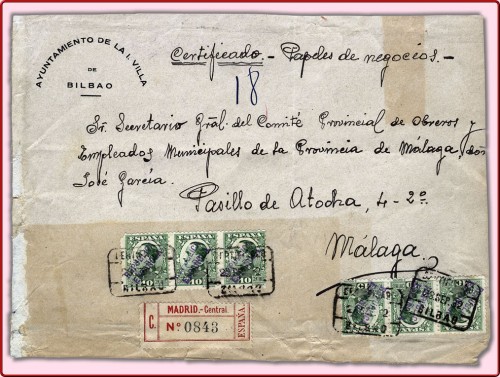 AYUNTAMIENTO DE LA I. VILLA
DE
BILBAO
Certificado.- Papeles de negocios.-
18
Sr. Secretario Gral. del Comité Provincial de Obreros y
Empleados Municipales de la Provincia de Málaga, don
José García.
Pasillo de Atocha, 4-2º.
Málaga.
ESPAÑA
10
10
10
BILBAO
BILBAO
BILBAO
BILBAO
MADRID.-Central
C.
Nº 0843
ESPAÑA